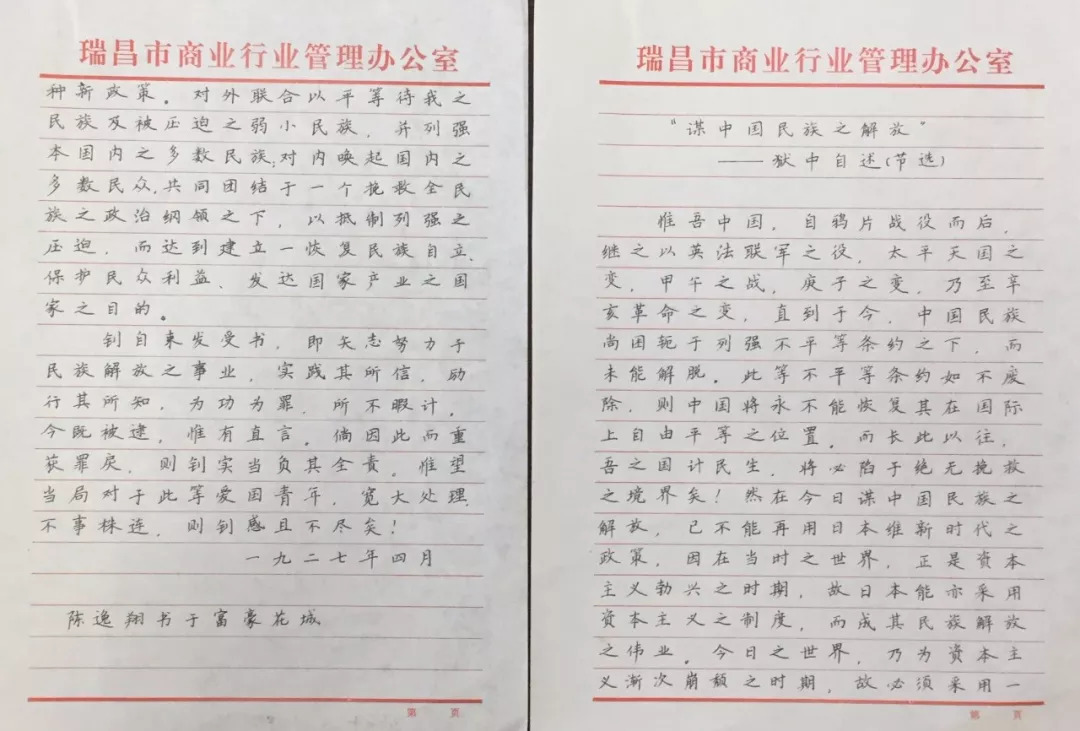 瑞昌市商业行业管理办公室
"谋中国民族之解放"
——狱中自述(节选)
惟吾中国，自鸦片战役而后，
继之以英法联军之役，太平天国之
变，甲午之战，庚子之变，乃至辛
亥革命之变，直到于今，中国民族
尚困轭于列强不平等条约之下，而
未能解脱。此等不平等条约如不废
除，则中国将永不能恢复其在国际
上自由平等之位置。而长此以往，
吾之国计民生，将必陷于绝无挽救
之境界矣！然在今日谋中国民族之
解放，已不能再用日本维新时代之
政策，因在当时之世界，正是资本
主义勃兴之时期，故日本能亦采用
资本主义之制度，而成其民族解放
之伟业。今日之世界，乃为资本主
义渐次崩颓之时期，故必须采用一
第 页
瑞昌市商业行业管理办公室
种新政策。对外联合以平等待我之
民族及被压迫之弱小民族，并列强
本国内之多数民族；对内唤起国内之
多数民众，共同团结于一个挽救全民
族之政治纲领之下，以抵制列强之
压迫，而达到建立一恢复民族自立、
保护民众利益、发达国家产业之国
家之目的。
钊自束发受书，即矢志努力于
民族解放之事业，实践其所信，励
行其所知，为功为罪，所不暇计。
今既被逮，惟有直言。倘因此而重
获罪戾，则钊实当负其全责。惟望
当局对于此等爱国青年，宽大处理，
不事株连，则钊感且不尽矣！
一九二七年四月
陈逸翔书于富豪花城
第 页